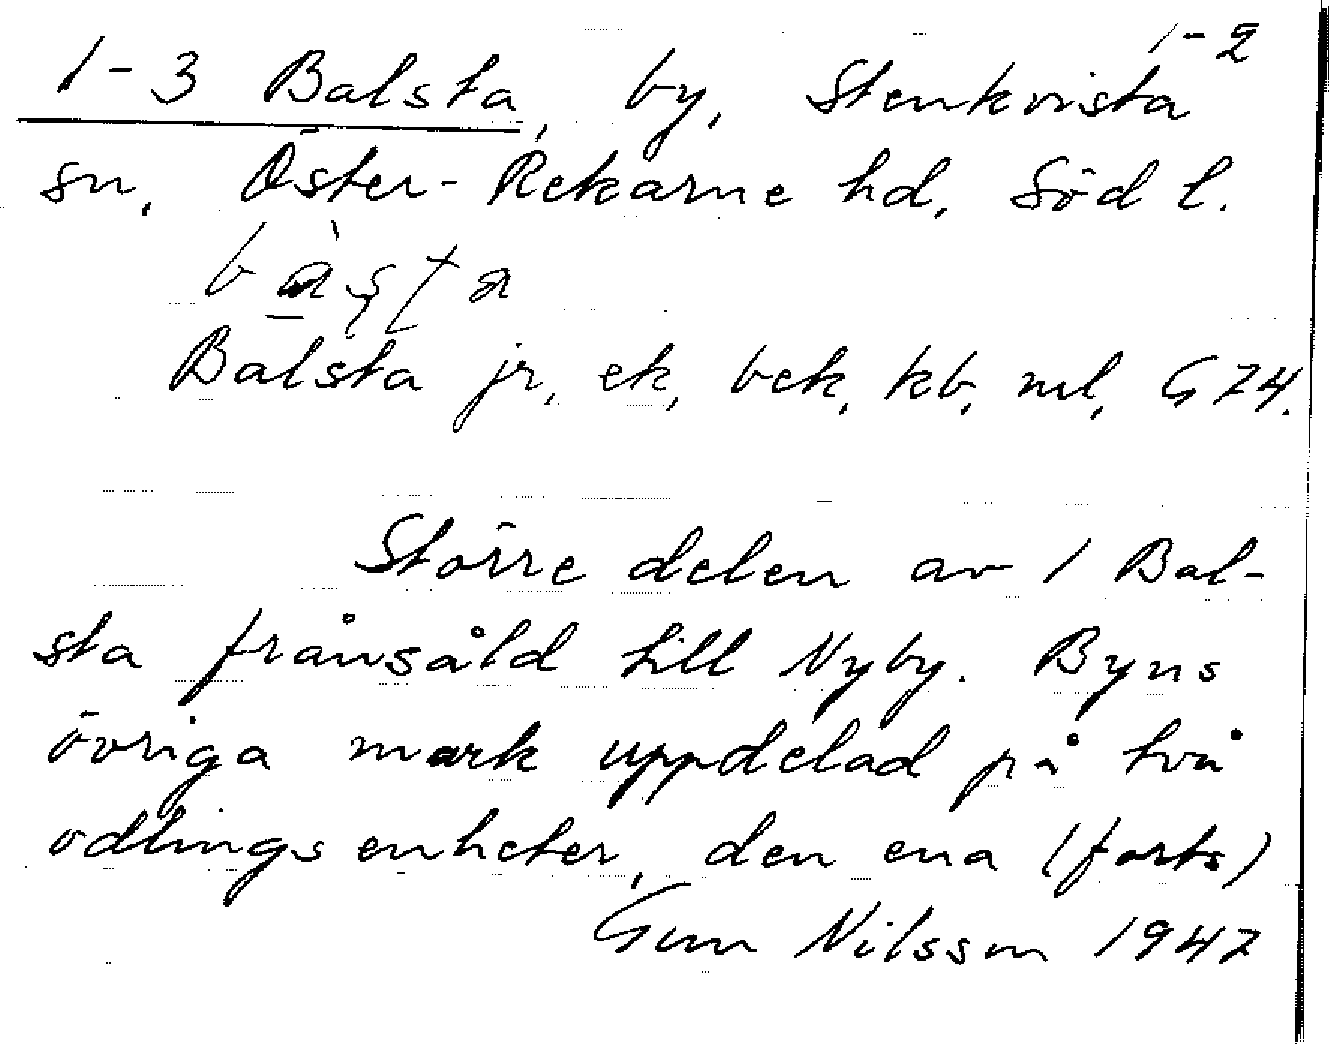 1-2
1-3 Balsta, by, Stenkvista
sn, Öster-Rekarne hd, Södl.
Balsta jr, ek, bek, kb, ml, G74.
Större delen av 1 Bal-
sta frånsåld till Nyby. Byns
övriga mark uppdelad på två
odlingsenheter, den ena (forts)
Gun Nilsson 1947